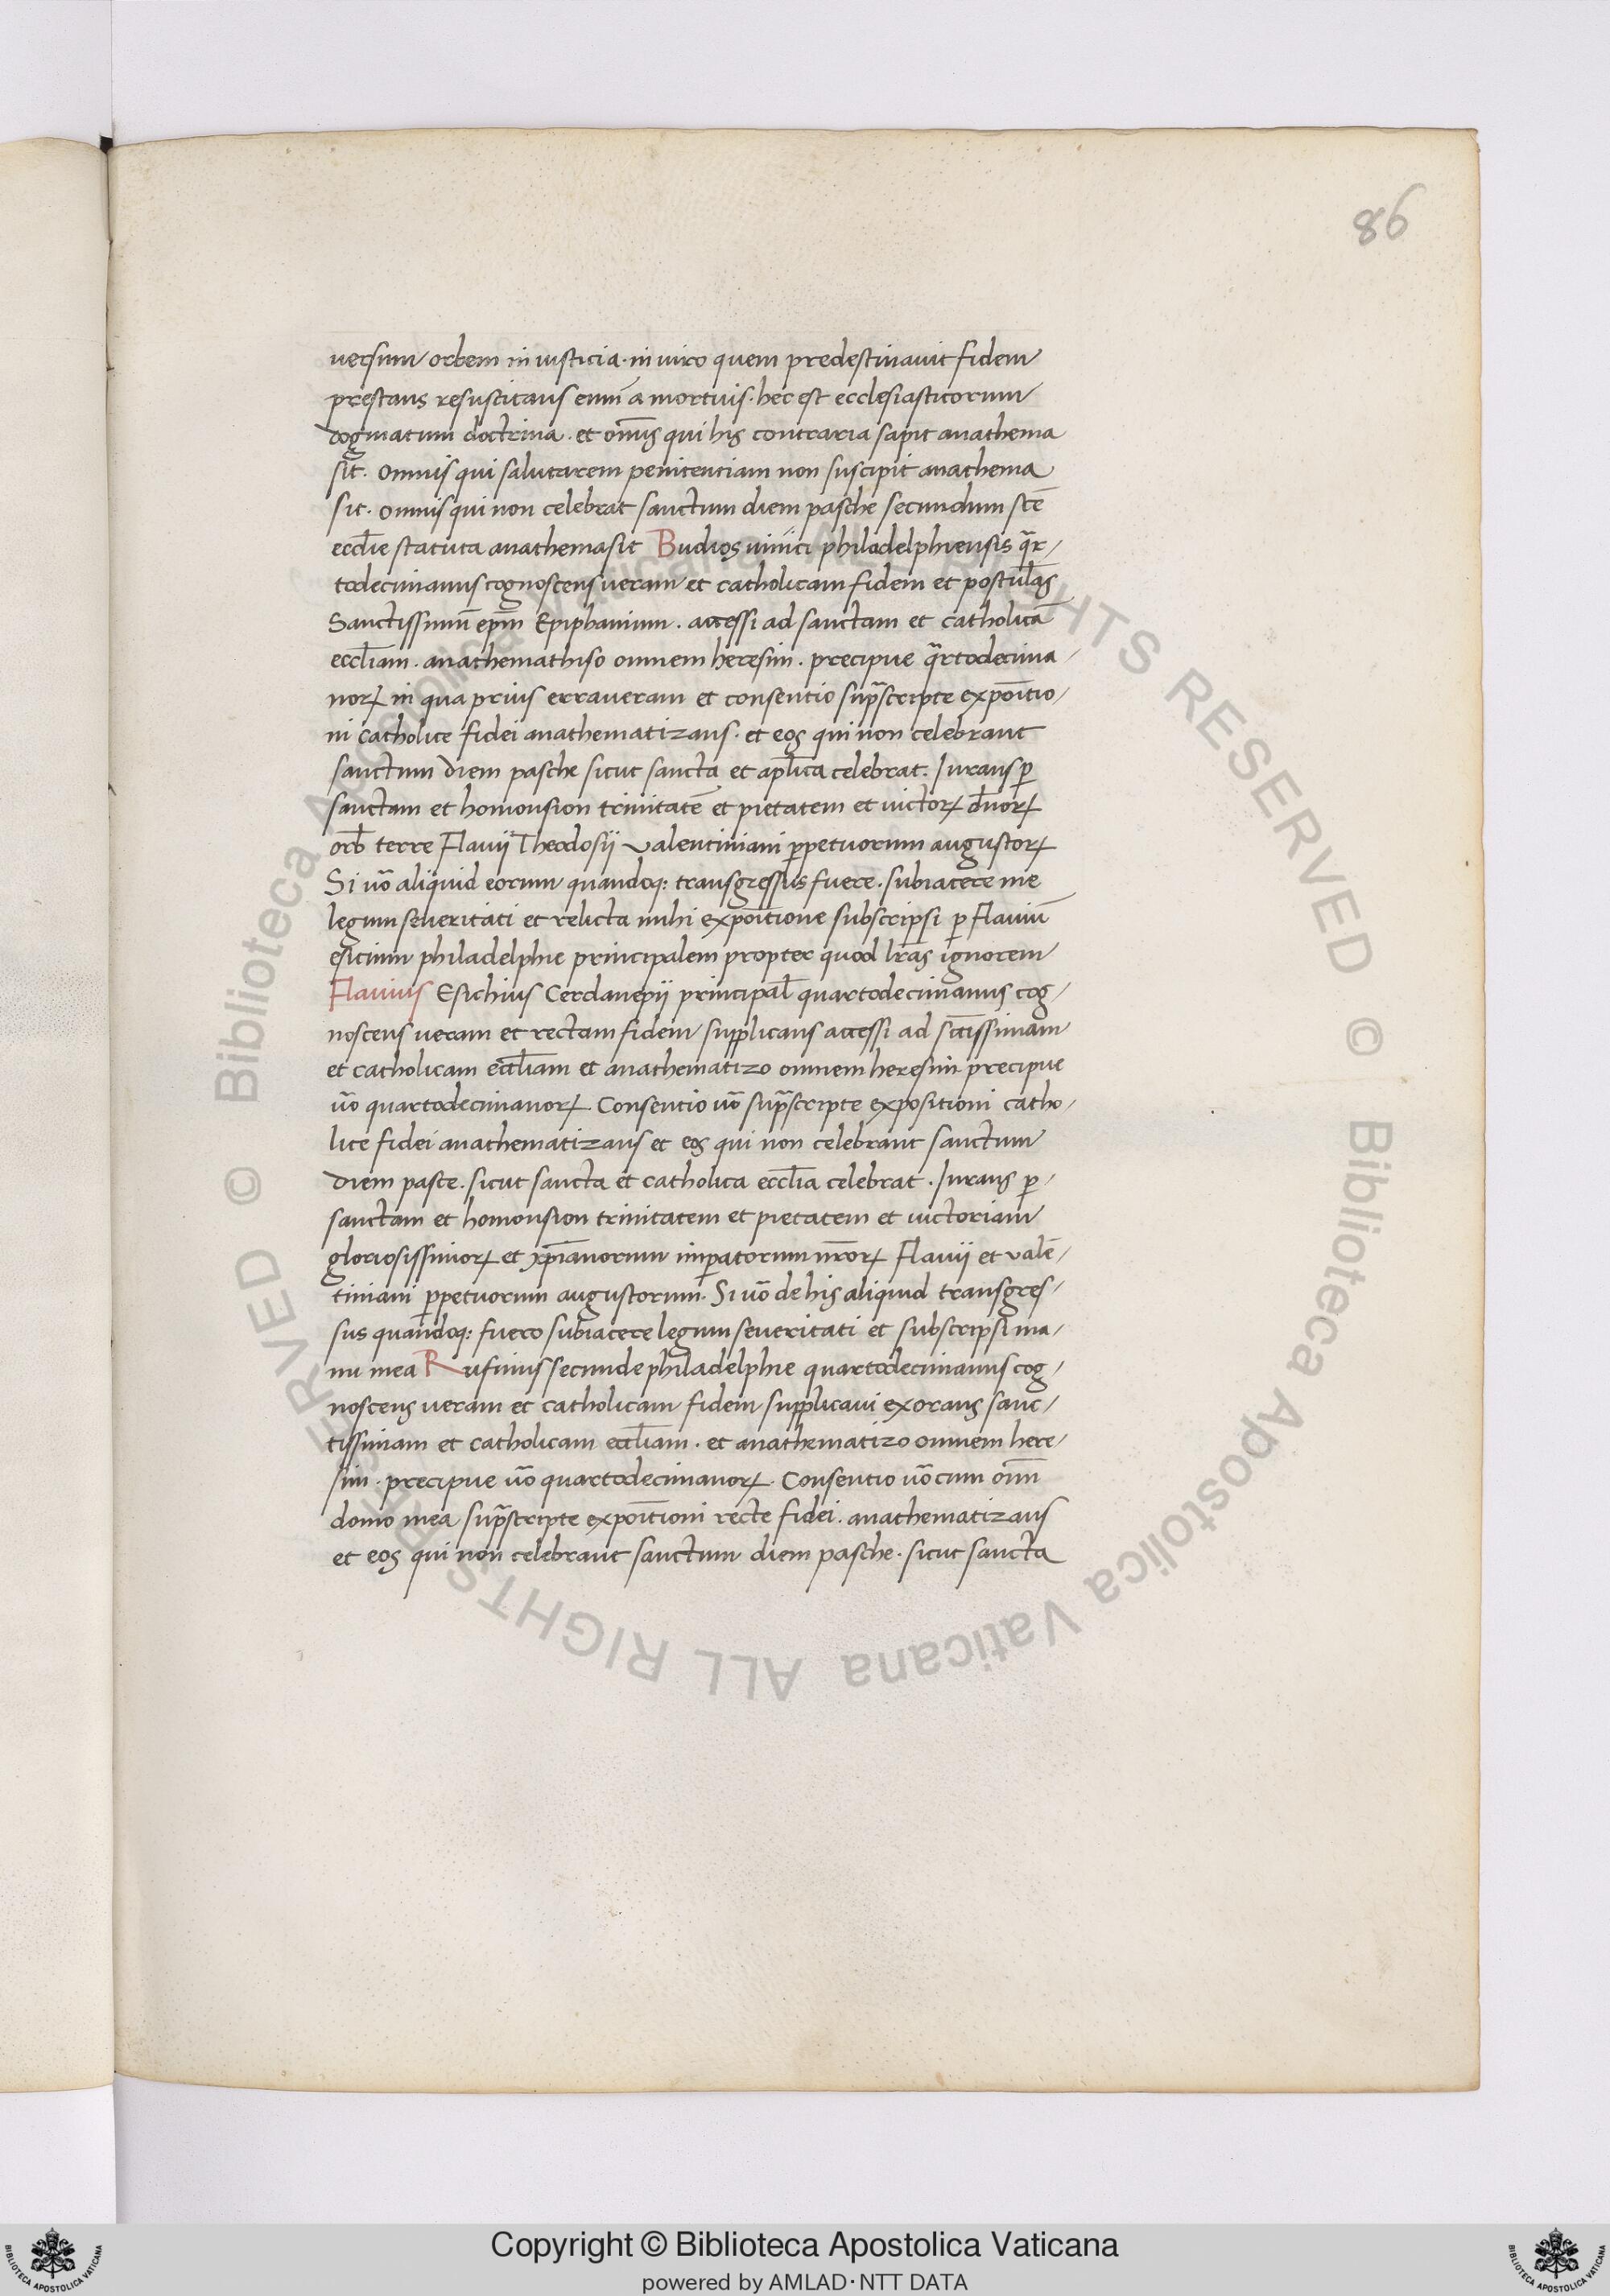 86
uersum orbem in iusticia · in uiro quem predestinauit fidem
prestans resuscitans eum̄ a mortuis · hec est ecclesiasticorum
dogmatum doctrina · et om̄is qui his contraria sapit anathema
sit · omnis qui salutarem penitentiam non suscipit anathema
sit · omnis qui non celebrat sanctum diem pasche secundum scē
eccl̄ie statuta anathema sit Budios uinici philadelphiensis q̄r/
todecimanus cognoscens ueram et catholicam fidem et postul̄as
Sanctissimū ep̄m Epiphanium · accessi ad sanctam et catholicā
eccl̄iam · anathemathiso omnem heresim · precipue q̄rtodecima/
norꝝ in qua prius erraueram et consentio sup̄scripte expōitio/
ni catholice fidei anathematizans · et eos qui non celebrant
sanctum diem pasche sicut sancta et apl̄ica celebrat · Iurans ꝑ
sanctam et homousion trinitatē et pietatem et uictorꝝ dn̄orꝝ
orb̄ terre Flauij Theodosij Valentiniani ꝑpetuorum augustorꝝ
Si uō aliquid eorum quandoq: transgressus fuere · subiacere me
legum seueritati et relicta mihi expōitione subscripsi ꝑ Flauiū
esicium philadelphie principalem propter quod lr̄as ignorem
Flauius Esichius Cerdanepij principal̄ quartodecimanus cog/
noscens ueram et rectam fidem supplicans accessi ad sc̄tissimam
et catholicam eccl̄iam et anathematizo omnem heresim precipue
uō quartodecimanorꝝ Consentio uō sup̄scripte expositioni catho/
lice fidei anathematizans et eos qui non celebrant sanctum
diem pasce · sicut sancta et catholica eccl̄ia celebrat · Iurans ꝑ/
sanctam et homousion trinitatem et pietatem et uictoriam
gloriosissimorꝝ et xp̄ianorum imꝑatorum nr̄orꝝ Flauij et valē/
tiniani ꝑpetuorum augustorum · Si uō de his aliquid transgres/
sus quandoq: fuero subiacere legum seueritati et subscripsi ma/
nu mea Rufinus secunde philadelphie quartodecimanus cog/
noscens ueram et catholicam fidem supplicaui exorans sanc/
tissimam et catholicam eccl̄iam · et anathematizo omnem here/
sim · precipue uō quartodecimanorꝝ · Consentio uō cum om̄i
domo mea sup̄scripte expōitioni recte fidei · anathematizans
et eos qui non celebrant sanctum diem pasche · sicut sancta
© Biblioteca Apostolica Vaticana ALL RIGHTS RESERVED
© Biblioteca Apostolica Vaticana ALL RIGHTS RESERVED
Copyright © Biblioteca Apostolica Vaticana
powered by AMLAD · NTT DATA
BIBLIOTECA APOSTOLICA VATICANA
BIBLIOTECA APOSTOLICA VATICANA